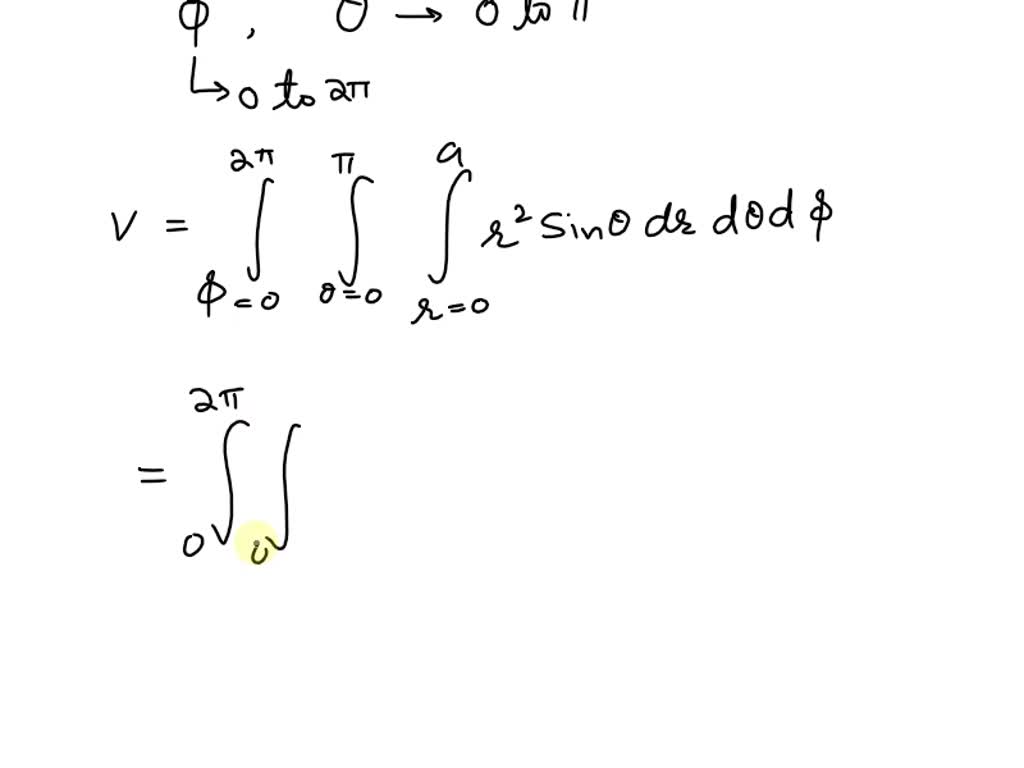 ϕ , θ → 0 to π
↳ 0 to 2π
V = ∫_{ϕ=0}^{2π} ∫_{θ=0}^{π} ∫_{r=0}^{a} r² sinθ dr dθ dϕ
= ∫_{0}^{2π} ∫_{0}